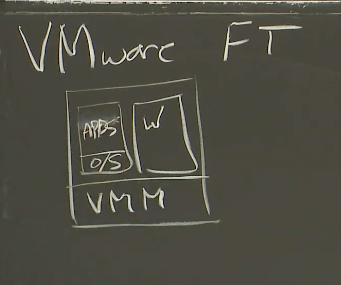 VMware FT
APPS W
O/S
VMM